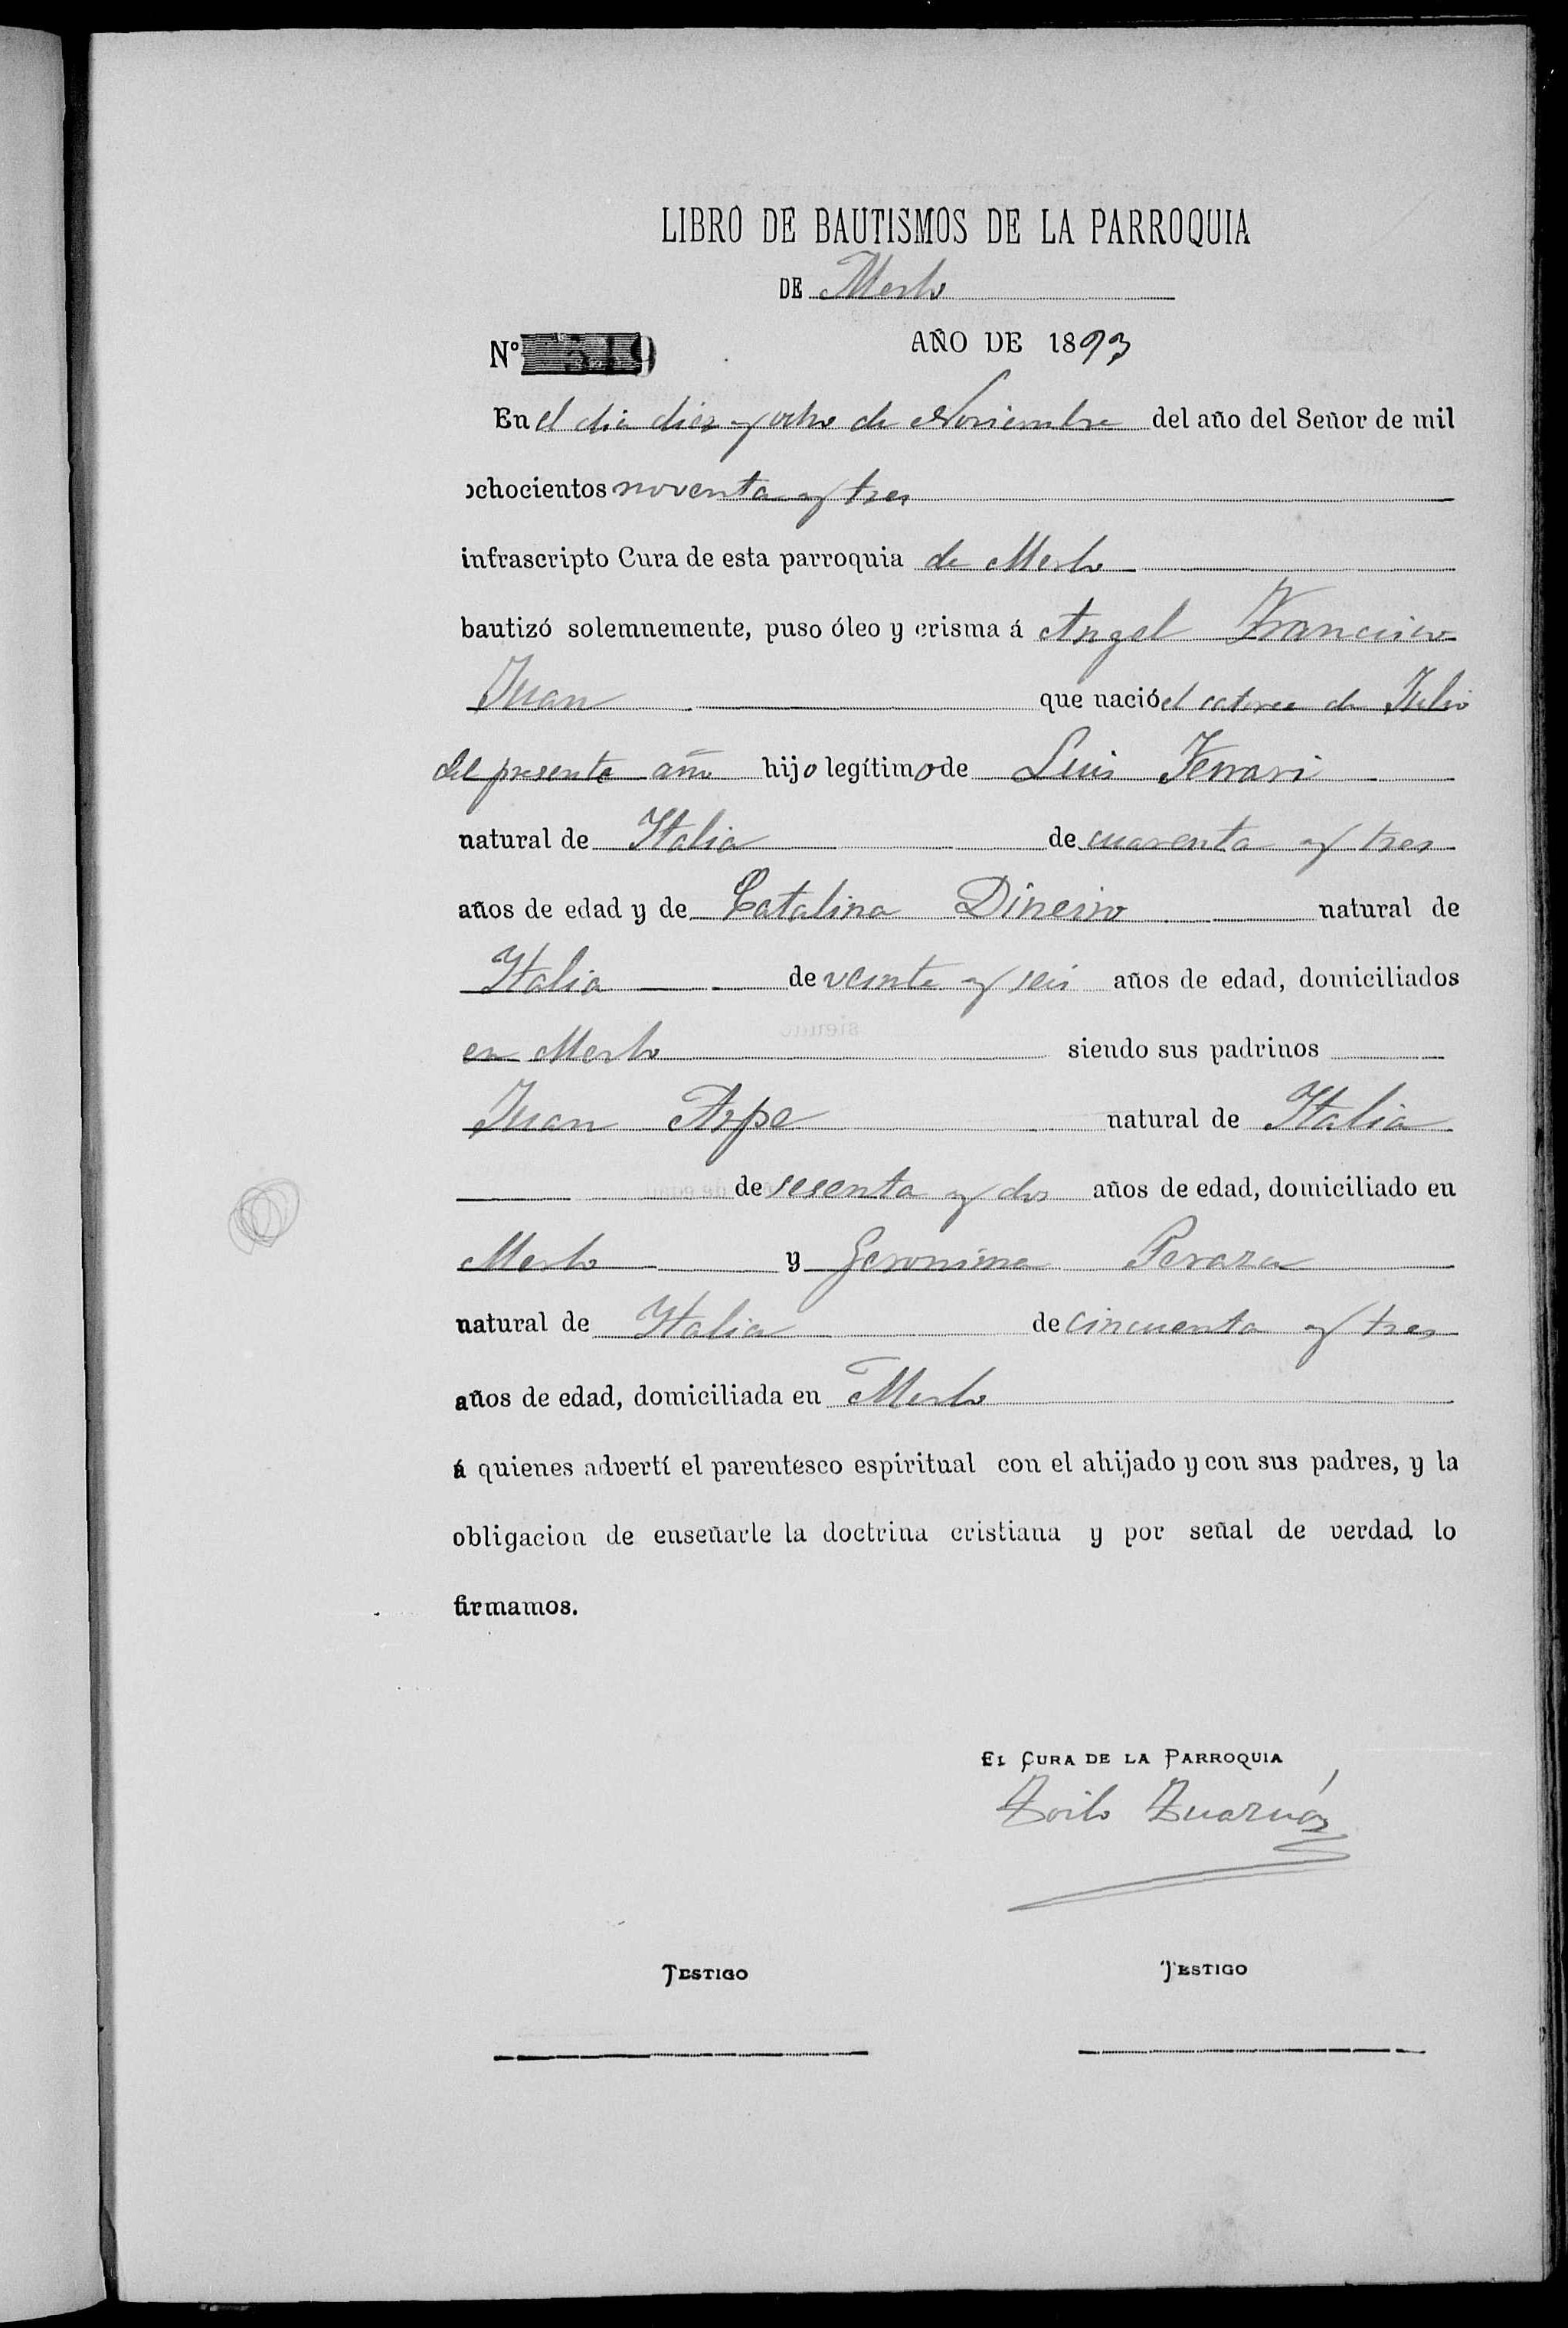 LIBRO DE BAUTISMOS DE LA PARROQUIA
DE Merlo
Nº 319 AÑO DE 1893
En el dia diez y ocho de Noviembre del año del Señor de mil
ochocientos noventa y tres
infrascripto Cura de esta parroquia de Merlo
bautizó solemnemente, puso óleo y crisma á Angel Francisco
Juan que nació el catorce de Julio
del presente año hijo legítimo de Luis Ferrari
natural de Italia de cuarenta y tres
años de edad y de Catalina Dineiro natural de
Italia de veinte y seis años de edad, domiciliados
en Merlo siendo sus padrinos
Juan Arpe natural de Italia
de sesenta y dos años de edad, domiciliado en
Merlo y Geronima Peraza
natural de Italia de cincuenta y tres
años de edad, domiciliada en Merlo
á quienes advertí el parentesco espiritual con el ahijado y con sus padres, y la
obligacion de enseñarle la doctrina cristiana y por señal de verdad lo
firmamos.
EL CURA DE LA PARROQUIA
Zoilo
TESTIGO TESTIGO